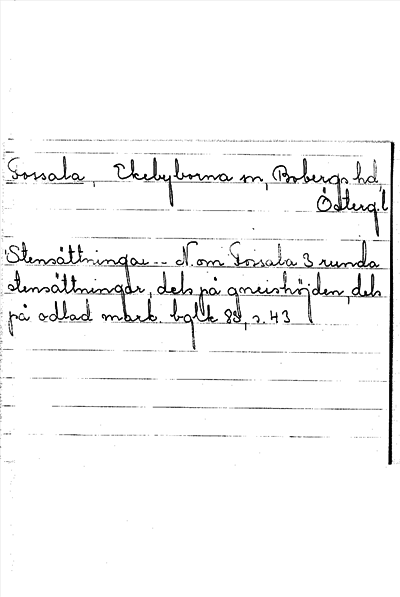 Fossala, Ekebyborna sn, Bobergs hd,
Österg'l
Stensättningar -- N. om Fossala 3 runda
stensättningar, dels på gneishöjden, dels
på odlad mark. bglk 83, s. 43